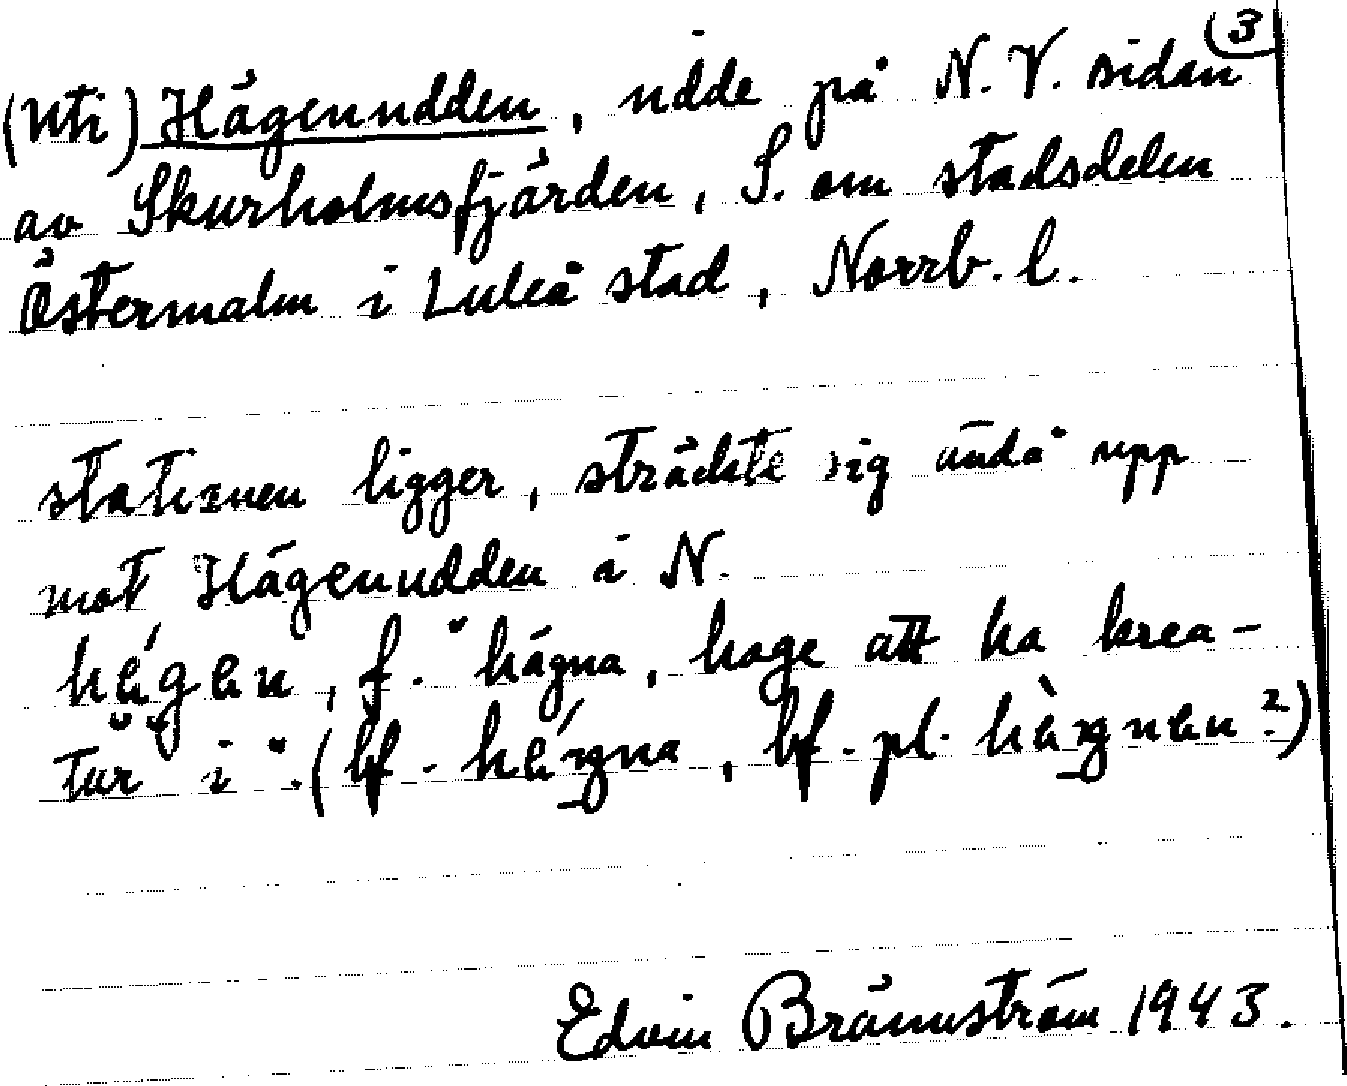 3
(Uti) Hägenudden, udde på N.V. sidan
av Skurholmsfjärden, S. om stadsdelen
Östermalm i Luleå stad, Norrb. l.
stationen ligger, sträckte sig ända upp
mot Hägenudden i N.
f. "hägna, hage att ha krea-
tur i". (bf. bf. pl.
Edvin Brännström 1943.